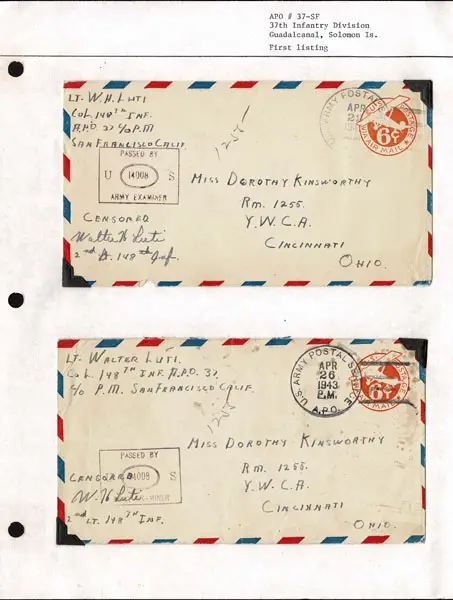 APO # 37-SF
37th Infantry Division
Guadalcanal, Solomon Is.
First listing
LT. W.H. LUTI
CO L. 148TH INF.
A.P.O. 37 c/o P.M
SAN FRANCISCO CALIF.
PASSED BY
U 14008 S
ARMY EXAMINER
CENSORED
Walter H Luti
2nd Lt. 148th Inf.
1255
U.S. ARMY POSTAL
APR
U.S. POSTAGE
6¢
VIA AIR MAIL
MISS DOROTHY KINSWORTHY
RM. 1255.
Y.W.C.A.
CINCINNATI
OHIO.
LT. WALTER LUTI.
CO L. 148TH INF. A.P.O. 37
c/o P.M. SAN FRANCISCO CALIF.
PASSED BY
14008 S
EXAMINER
CENSORED
W. H Luti
2nd LT. 148TH INF.
1255
U.S. ARMY POSTAL SERVICE
APR
26
1943
P.M.
A.P.O.
6¢
AIR MAIL
MISS DOROTHY KINSWORTHY
RM. 1255.
Y.W.C.A.
CINCINNATI
OHIO.